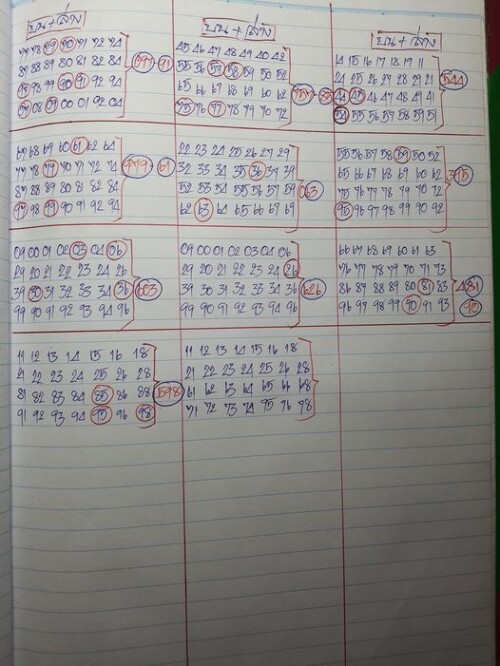 บน+ล่าง
บน+ล่าง
บน+ล่าง
77 78 79 70 71 72 74
87 88 89 80 81 82 84
97 98 99 90 91 92 94
07 08 09 00 01 02 04
45 46 47 48 49 40 42
55 56 57 58 59 50 52
65 66 67 68 69 60 62
75 76 77 78 79 70 72
14 15 16 17 18 19 11
24 25 26 27 28 29 21
44 45 46 47 48 49 41
54 55 56 57 58 59 51
544
67 68 69 60 61 62 64
77 78 79 70 71 72 74
87 88 89 80 81 82 84
97 98 99 90 91 92 94
979 - 61
22 23 24 25 26 27 29
32 33 34 35 36 37 39
52 53 54 55 56 57 59
62 63 64 65 66 67 69
063
55 56 57 58 59 50 52
65 66 67 68 69 60 62
75 76 77 78 79 70 72
95 96 97 98 99 90 92
395
09 00 01 02 03 04 06
29 20 21 22 23 24 26
39 30 31 32 33 34 36
99 90 91 92 93 94 96
603
09 00 01 02 03 04 06
29 20 21 22 23 24 26
39 30 31 32 33 34 36
99 90 91 92 93 94 96
626
66 67 68 69 60 61 63
76 77 78 79 70 71 73
86 87 88 89 80 81 83
96 97 98 99 90 91 93
481
90
11 12 13 14 15 16 18
21 22 23 24 25 26 28
81 82 83 84 85 86 88
91 92 93 94 95 96 98
598
11 12 13 14 15 16 18
21 22 23 24 25 26 28
61 62 63 64 65 66 68
71 72 73 74 75 76 78